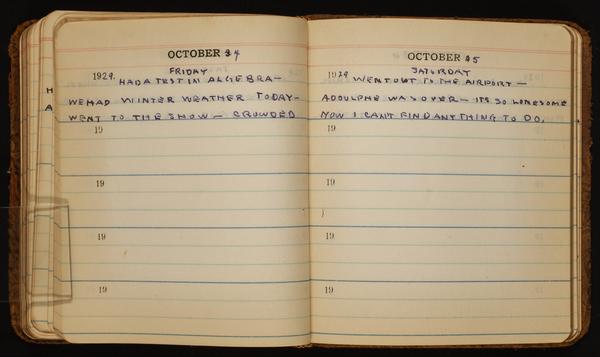 OCTOBER 24
FRIDAY
1929. HAD A TEST IN ALGEBRA—
WE HAD WINTER WEATHER TODAY—
WENT TO THE SHOW — CROWDED
19
19
19
19
OCTOBER 25
SATURDAY
1929 WENT OUT TO THE AIRPORT —
ADOULPHE WAS OVER — ITS SO LONESOME
NOW I CAN'T FIND ANYTHING TO DO.
19
19
19
19
H
A